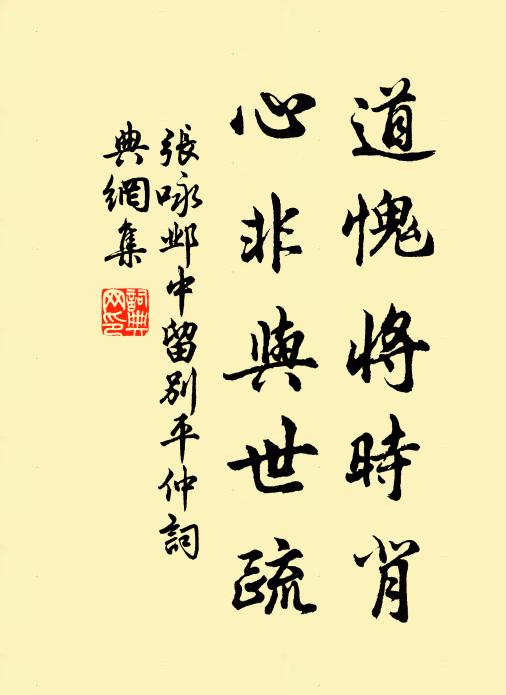 道愧將時背
心非與世疏
張咏鄴中留別平仲詞
典網集
詞典
网印